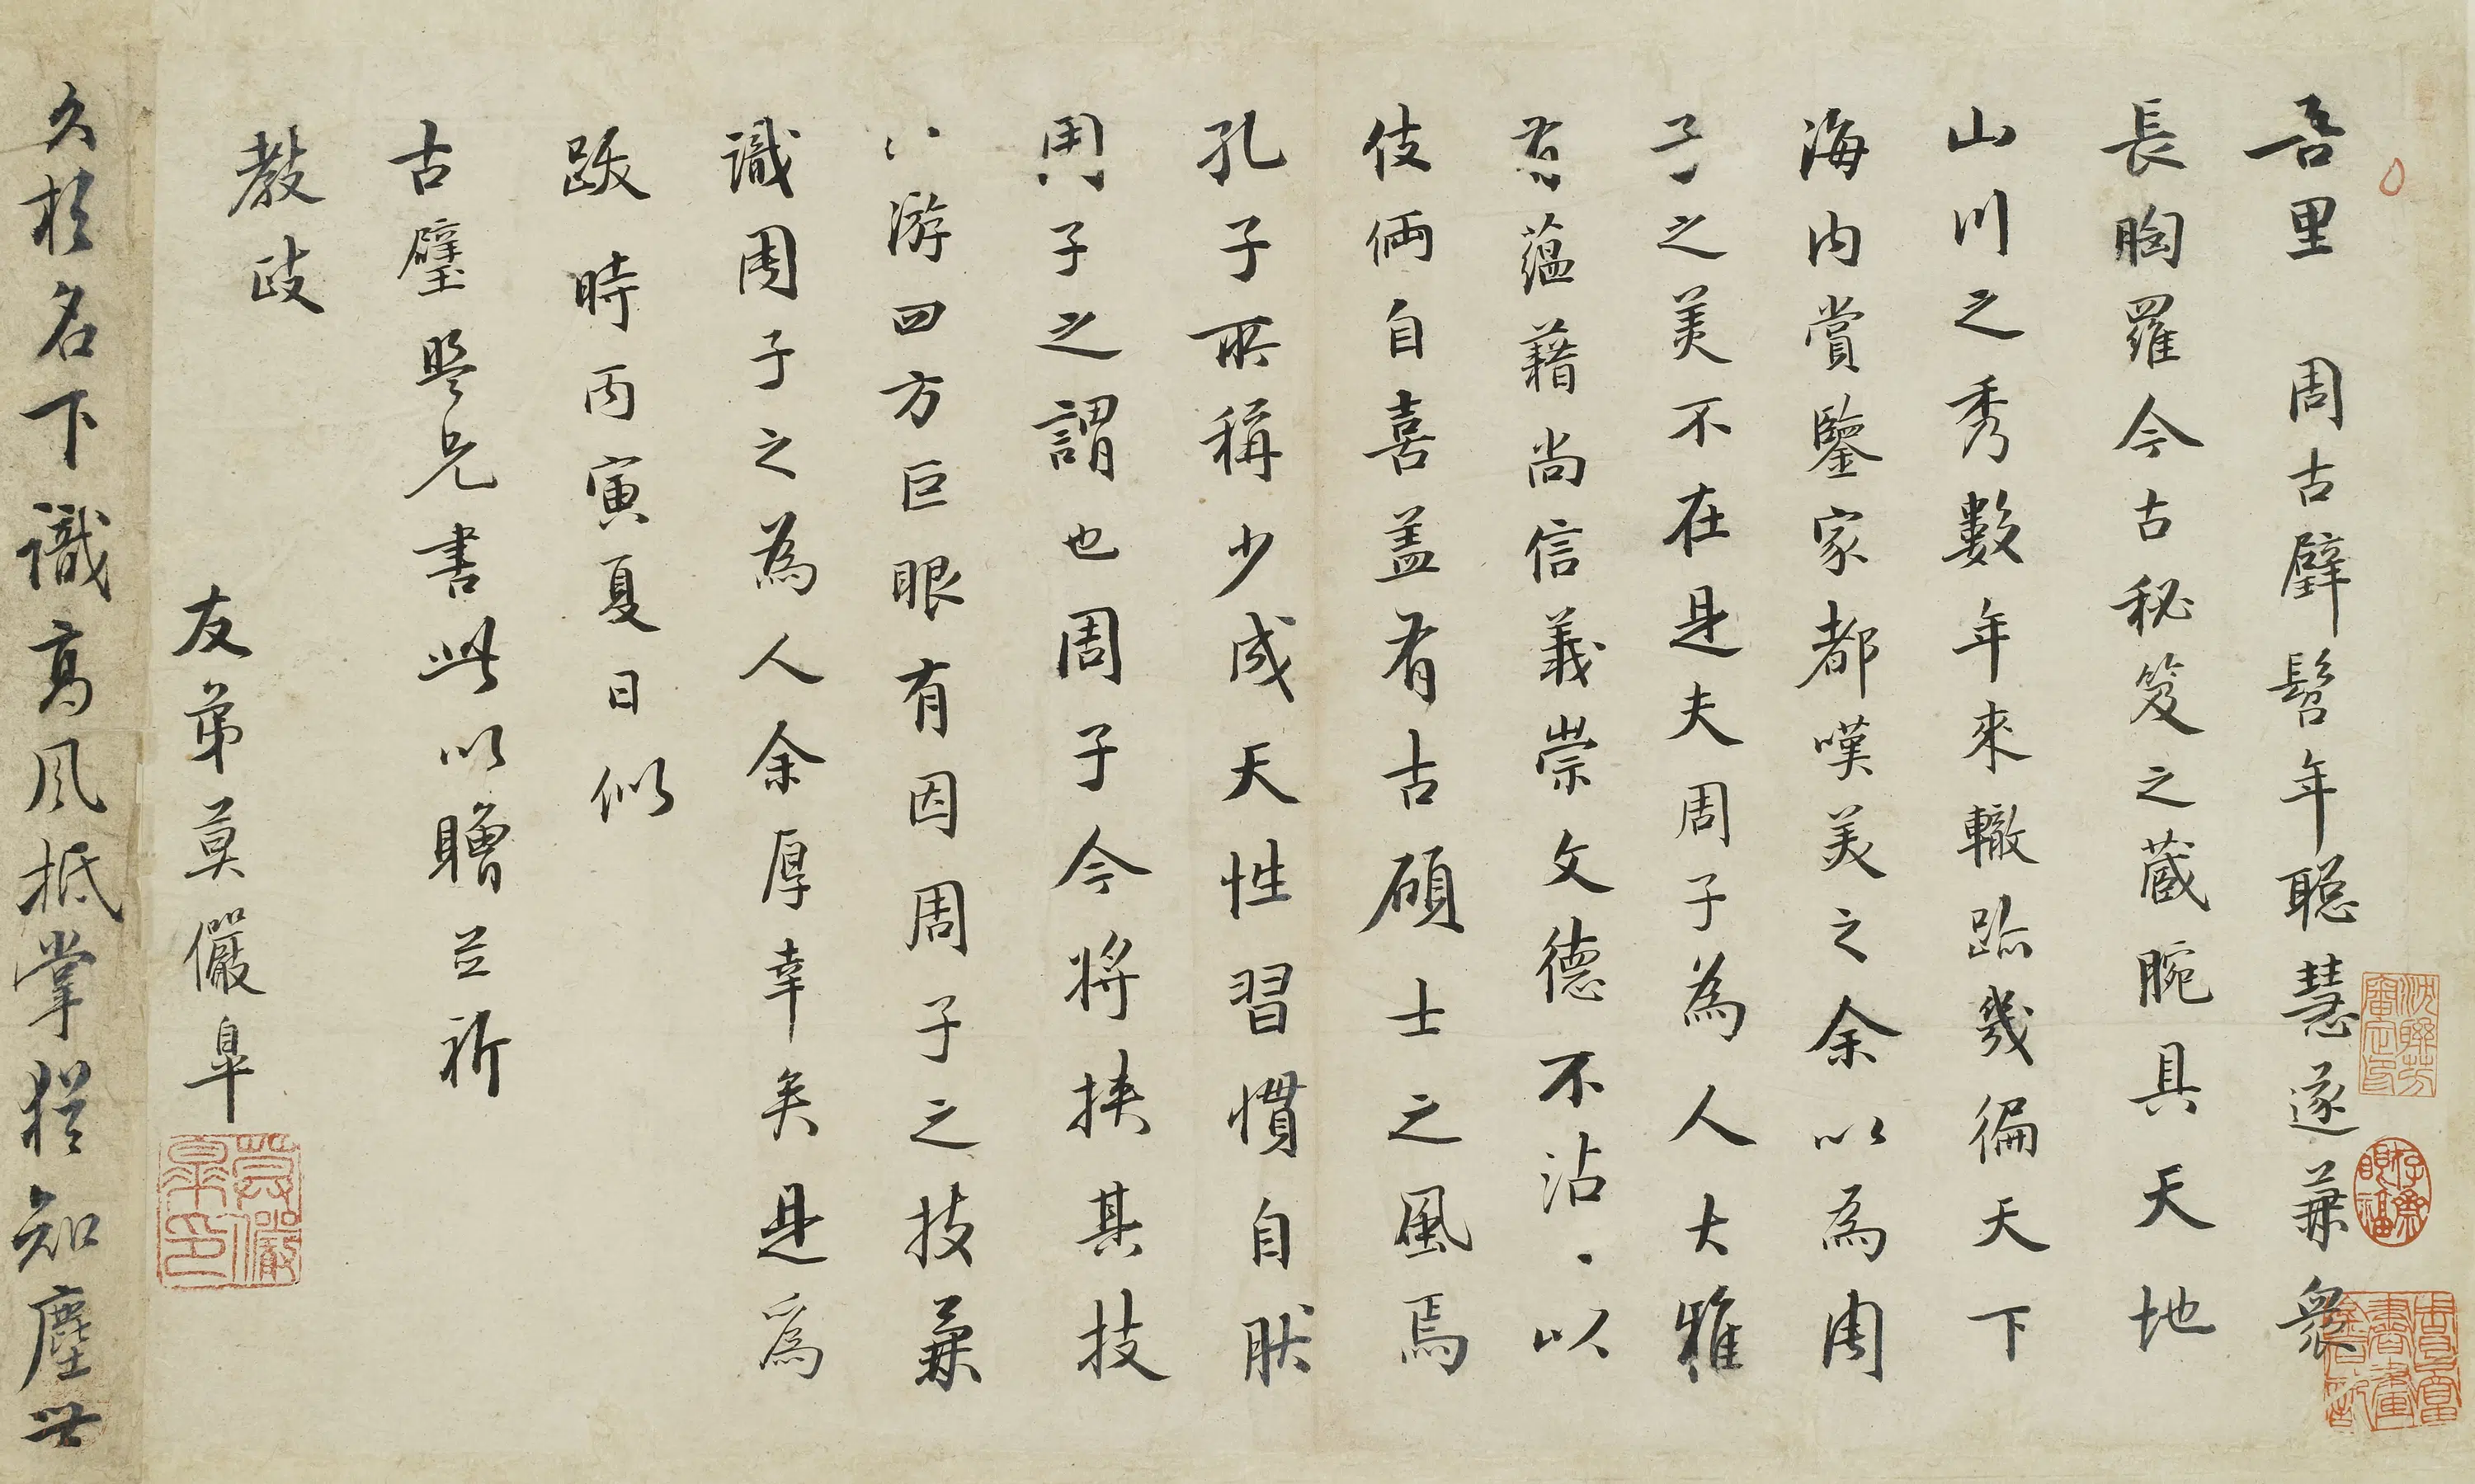 吾里 周古璧髫年聡慧遂兼衆
長胸羅今古秘笈之蔵腕具天地
山川之秀數年來轍跡幾徧天下
海内賞鑒家都嘆美之余以為周
子之美不在是夫周子為人大雅
有蘊藉尚信義崇文德不沾〻以
伎倆自喜盖有古碩士之風焉
孔子所稱少成天性習慣自肰
周子之謂也周子今將挟其技
以游四方巨眼有因周子之技兼
識周子之為人余厚幸矣是爲
跋 時丙寅夏日似
古璧盟兄書此以贈並祈
教政
友弟莫儼皐
久於名下識高風抵掌猶知塵世
莫儼皋印